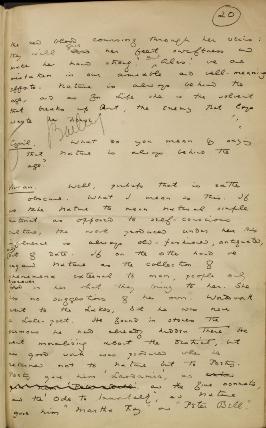 20
the red blood coursing through her veins:
they will lend her feet swiftness and
make her hand strong! Alas! we are
mistaken in our amiable and well-meaning
efforts. Nature is always behind the
age, and as for Life she is the solvent
that breaks up Art, the enemy that lays
waste the House.
Cyril. What do you mean by saying
that Nature is always behind the
age?
Vivian. Well, perhaps that is rather
obscure. What I mean is this. If
we take Nature to mean natural simple
instinct as opposed to self-conscious
culture, the work produced under her
influence is always old-fashioned, antiquated,
out of date. If on the other hand we
regard Nature as the collection of
phenomena external to man, people only
in her what they bring to her. She
has no suggestions of her own. Wordsworth
went to the Lakes, but he was never
a Lake-poet. He found in stones the
sermons he had already hidden there. He
went moralising about the District, but
his good work was produced when he
returned not to Nature but to Poetry.
Poetry gave him "Laodamia," and
the fine sonnets,
and the "Ode to Immortality", as Nature
gave him "Martha Ray" and "Peter Bell."